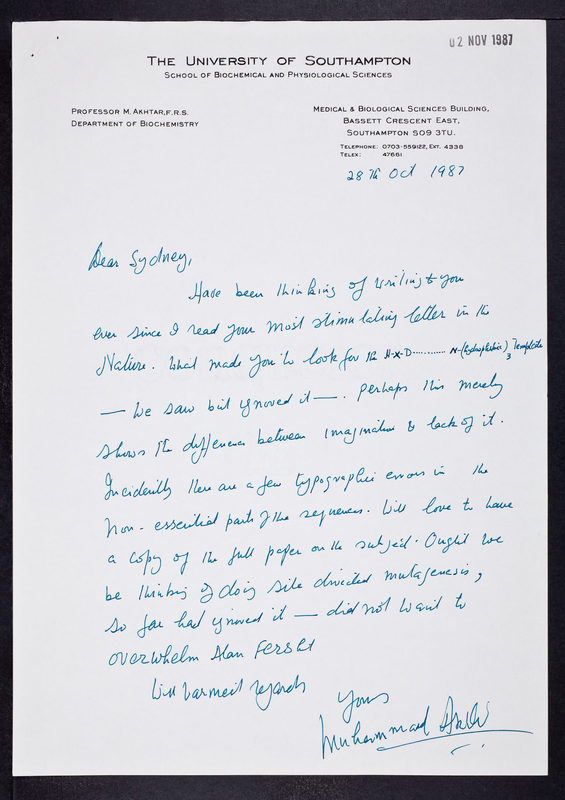 02 NOV 1987
THE UNIVERSITY OF SOUTHAMPTON
SCHOOL OF BIOCHEMICAL AND PHYSIOLOGICAL SCIENCES
PROFESSOR M. AKHTAR, F.R.S.
DEPARTMENT OF BIOCHEMISTRY
MEDICAL & BIOLOGICAL SCIENCES BUILDING,
BASSETT CRESCENT EAST,
SOUTHAMPTON SO9 3TU.
TELEPHONE: 0703-559122, EXT. 4338
TELEX: 47661
28th Oct 1987
Dear Sydney,
Have been thinking of writing to you
ever since I read your most stimulating letter in the
Nature. What made you to look for the H-X-D........... N-(hydrophobic)3 Template
— We saw but ignored it —. Perhaps this merely
shows the difference between imagination & lack of it.
Incidently there are a few typographic errors in the
non-essential parts of the sequences. Will love to have
a copy of the full paper on the subject. Ought we
be thinking of doing site divected mutagenesis,
so far had ignored it — did not want to
overwhelm Alan Fersht
With warmest regards
Yours
Muhammad Akhtar